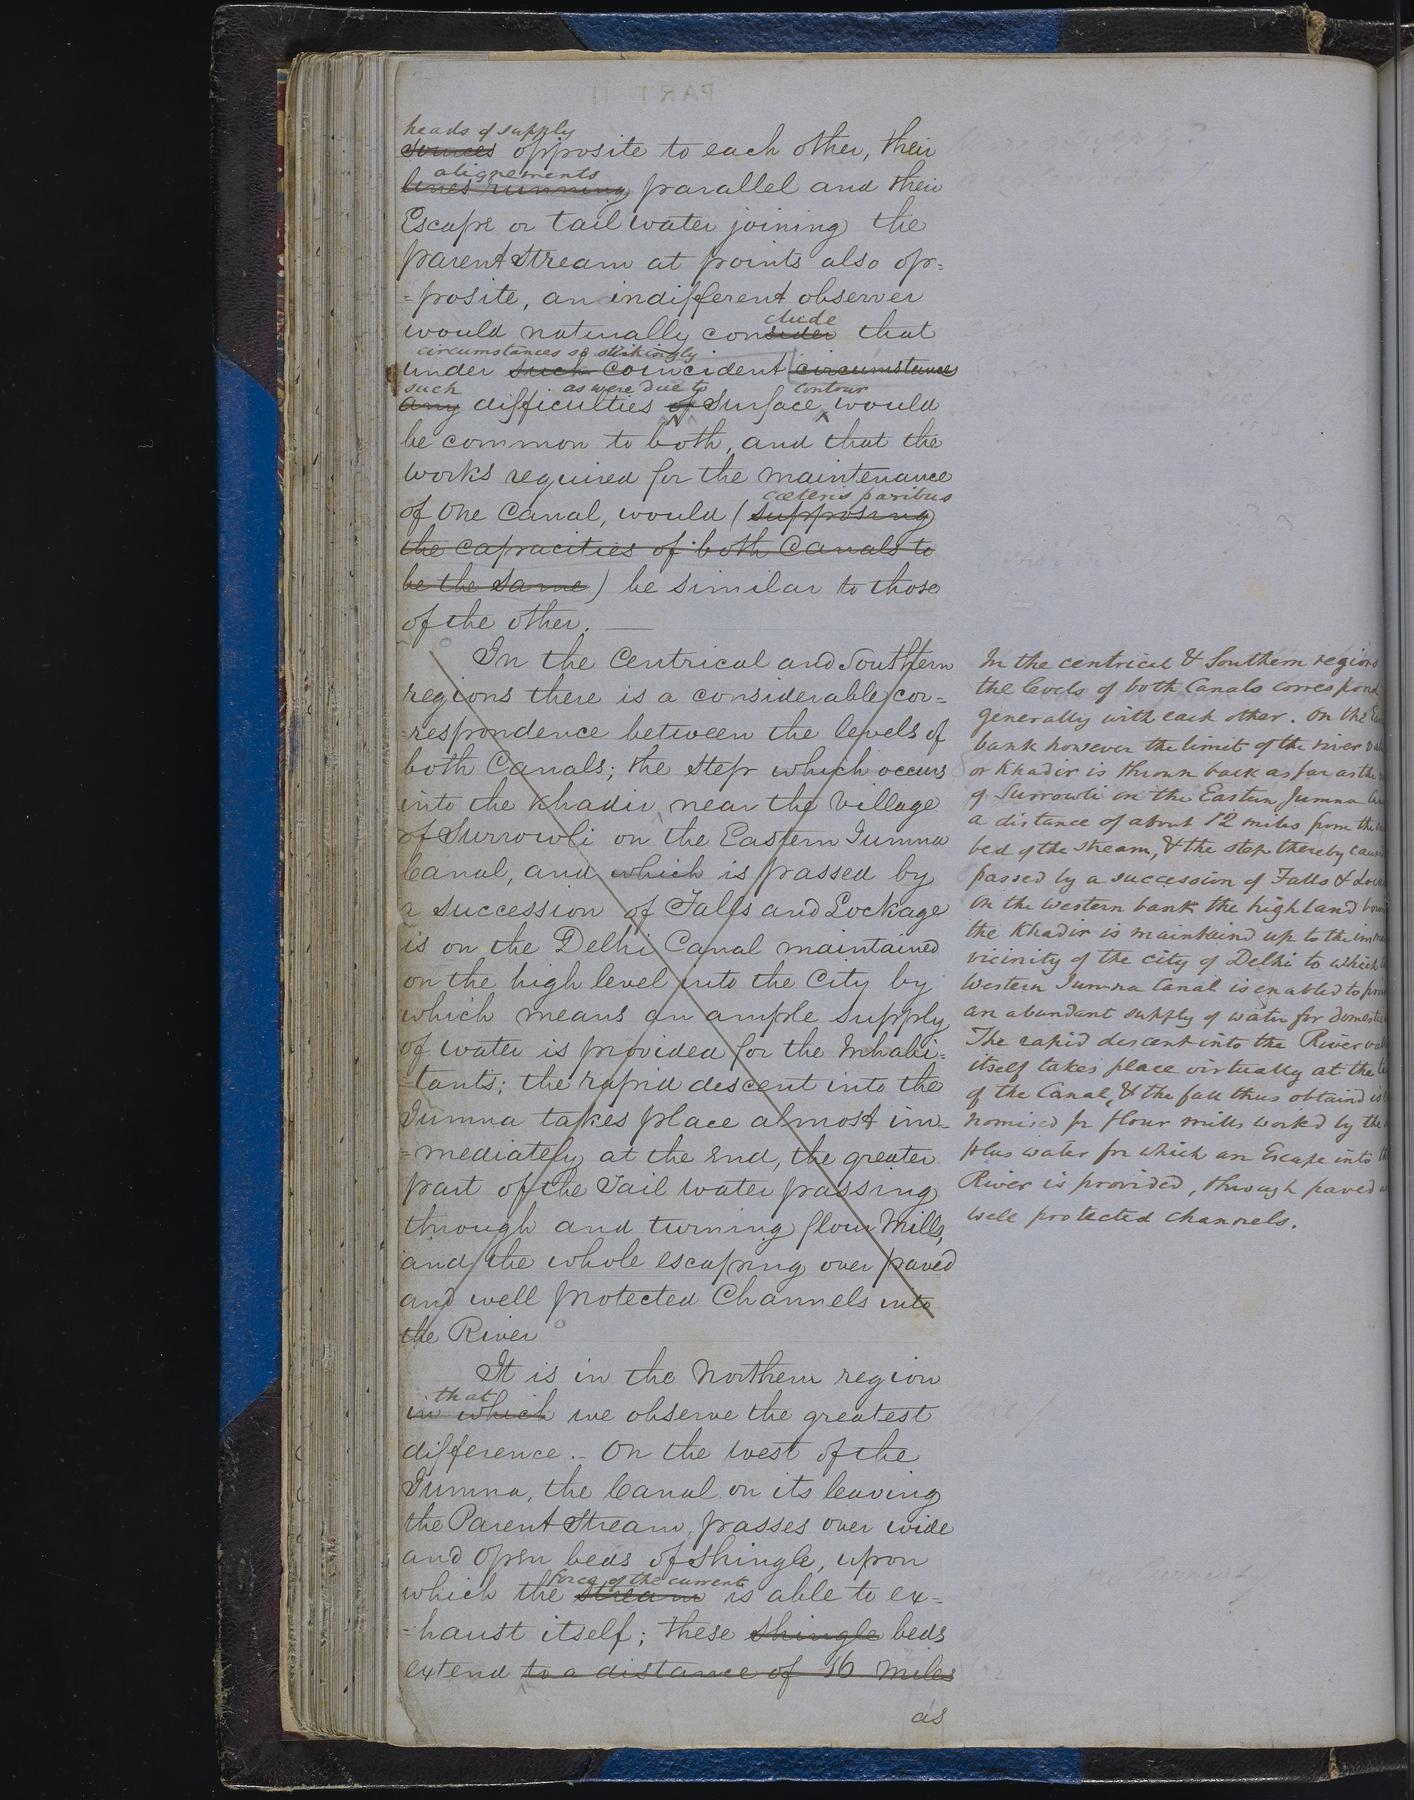 PART II
heads of supply
sources opposite to each other, their
alignements
lines running parallel and their
Escape or tail water joining the
parent Stream at points also op=
=posite, an indifferent observer
clude
would naturally consider that
circumstances so strikingly
under such coincident circumstances
such as were due to contour
any difficulties of Surface would
be common to both, and that the
works required for the maintenance
cæteris paribus
of One Canal, would (supposing
the capacities of both Canals to
be the same) be similar to those
of the other.
In the Centrical and Southern
regions there is a considerable cor=
=respondence between the levels of
both Canals; the step which occurs
into the Khadir near the Village
of Surrowli on the Eastern Jumna
Canal, and which is passed by
a succession of Falls and Lockage
is on the Delhi Canal maintained
on the high level into the City by
which means an ample supply
of water is provided for the Inhabi=
=tants; the rapid descent into the
Jumna takes place almost im=
=mediately at the End, the greater
part of the Tail water passing
through and turning flour Mills,
and the whole escaping over paved
and well protected Channels into
the River
It is in the Northern region
that
in which we observe the greatest
difference.. On the west of the
Jumna, the Canal on its leaving
the Parent Stream, passes over wide
and Open beds of Shingle, upon
force of the current
which the stream is able to ex=
=haust itself; these shingle beds
extend to a distance of 16 miles
as
In the centrical & Southern regions
the levels of both Canals correspond
generally with each other. On the
bank however the limit of the river
or Khadir is thrown back as far as the
of Surrowli on the Eastern Jumna
a distance of about 12 miles from the
bed of the stream, & the step thereby
passed by a succession of Falls &
On the western bank the high land
the Khadir is maintaind up to the
vicinity of the city of Delhi to which
Western Jumna Canal is enabled to
an abundant supply of water for
The rapid descent into the River
itself takes place virtually at the
of the Canal, & the fall thus obtaind is
nomised for flour mills workd by the
plus water for which an Escape into
River is provided, through paved
well protected channels.